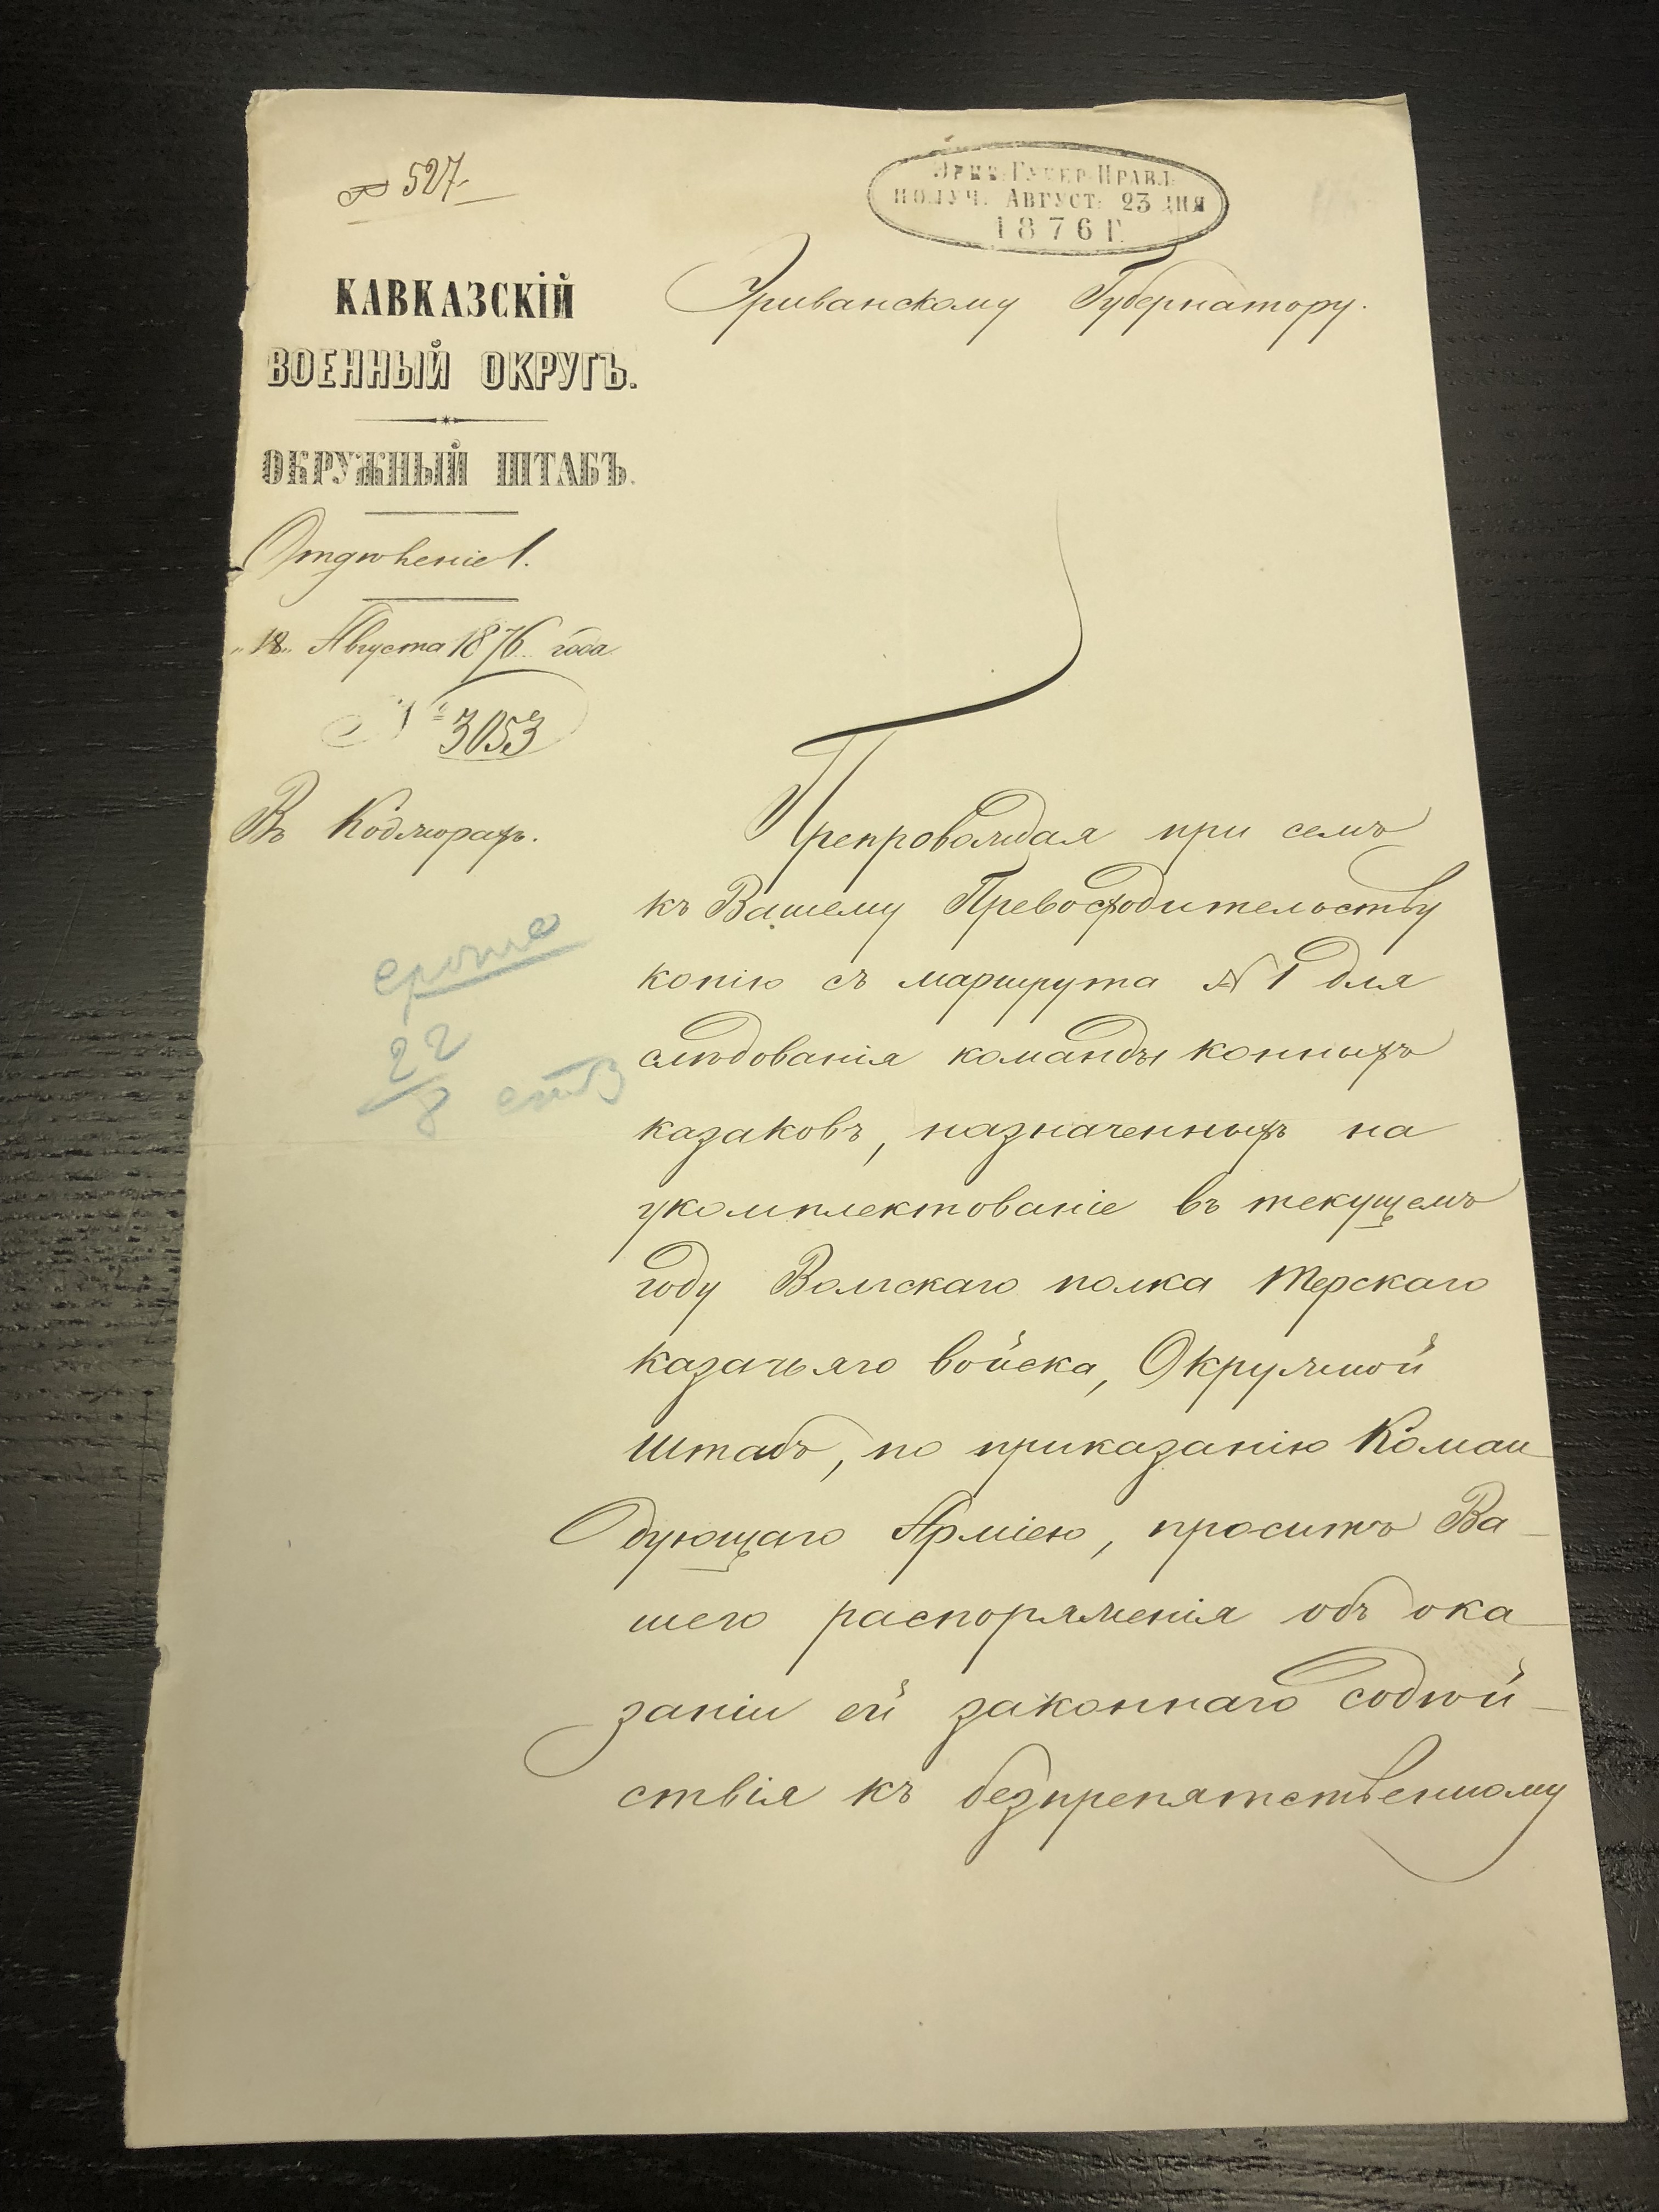 № 527.
Эрив. Губер. Правл.
получ. Август. 23 дня
1876 г.
КАВКАЗСКІЙ
ВОЕННЫЙ ОКРУГЪ.
ОКРУЖНЫЙ ШТАБЪ.
Отдѣленіе 1.
„18„ Августа 1876 года
№ 3053
Въ Коджорахъ.
Эриванскому Губернатору.
Препровождая при семъ
къ Вашему Превосходительству
копію съ маршрута № 1 для
слѣдованія команды конныхъ
казаковъ, назначенныхъ на
укомплектованіе въ текущемъ
году Волгскаго полка Терскаго
казачьяго войска, Окружной
Штабъ, по приказанію Коман
дующаго Арміею, проситъ Ва-
шего распоряженія объ ока-
заніи ей законнаго содѣй-
ствія къ безпрепятственному
22
8